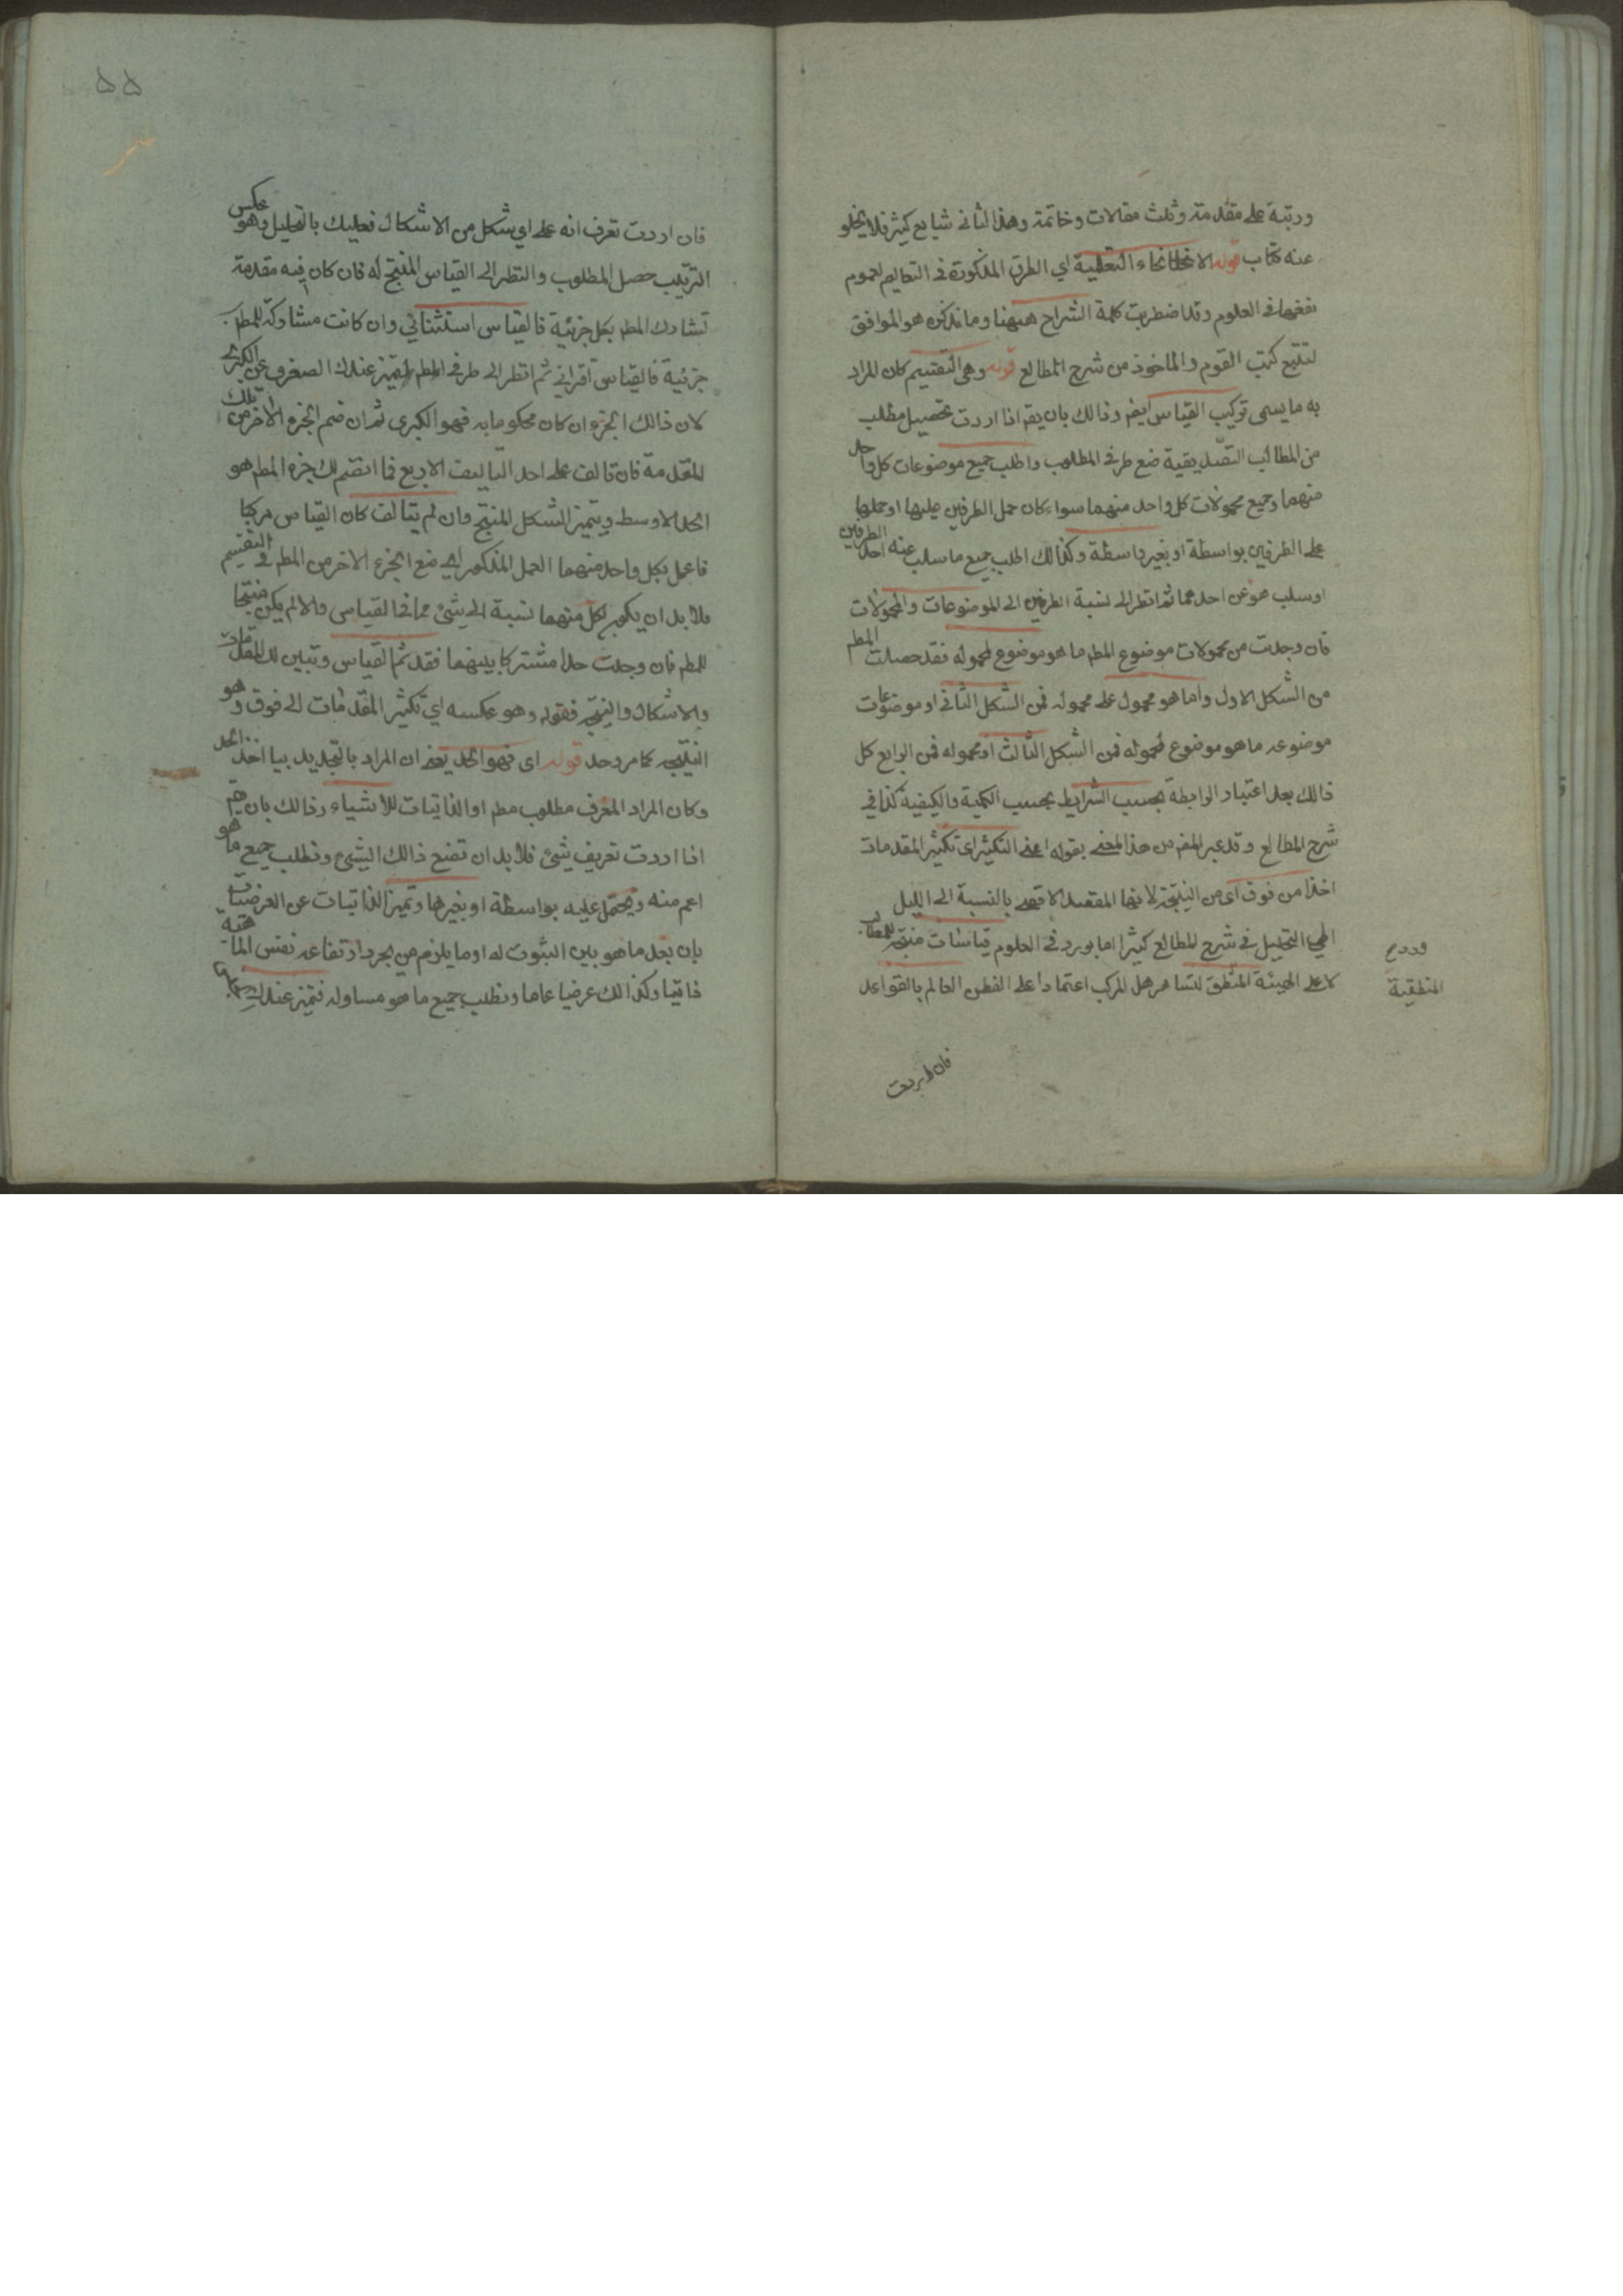 ورتبة على مقدمة وثلث مقالات وخاتمة وهذا الثانى شايع كثير فلا يخلو
عنه كتاب قوله الانحاء التعليمية اي الطرق المذكورة فى التعاليم لعموم
نفعها فى العلوم وقد اضطربت كلمة الشراح ههنا وما نذكره هو الموافق
لتتبع كتب القوم والماخوذ من شرح المطالع قوله وهى التقسيم كان المراد
به ما يسمى تركيب القياس ايضر وذالك بان يقر اذا اردت تحصيل مطلب
من المطالب التصديقية ضع طرفى المطلوب واطلب جميع موضوعات كل واحد
منهما وجميع محمولات كل واحد منهما سواء كان حمل الطرفين عليها او حملها
على الطرفين بواسطة او بغير واسطة وكذالك اطلب جميع ما سلب عنه احد الطرفين
او سلب هو عن احدهما ثم انظر الى نسبة الطرفين الى الموضوعات والمحمولات
فان وجدت من محمولات موضوع المطم ما هو موضوع لمحموله فقد حصلت المطم
من الشكل الاول واما هو محمول على محموله فمن الشكل الثانى او موضوعات
موضوعه ما هو موضوع لمحموله فمن الشكل الثالث او محموله فمن الرابع كل
ذالك بعد اعتبار الرابطة بحسب الشرايط بحسب الكمية والكيفية كذا في
شرح المطالع وقد عبر المغر من هذا المعنى بقوله اعنى التكثير اى تكثير المقدمات
اخذا من فوق اى من النتيجة لانها المقصد الاقصى بالنسبة الى الدليل
التحليل فى شرح المطالع كثيرا ما يورد فى العلوم قياسات منتجة للمطالب
لا على الهيئة المنطق لتساهر هل المركب اعتمادا على الفطن العالم بالقواعد
المنطقية
فان اردت
٥٥
فان اردت تعرف انه على اي شكل من الاشكال فعليك بالتحليل وهو عكس
التركيب حصل المطلوب والنظر الى القياس المنتج له فان كان فيه مقدمة
تشارك المطم بكل جزئية فالقياس استثنائي وان كانت مشاركة للمطم
جزئية فالقياس اقترانى ثم انظر الى طرفى المطم ليتميز عندك الصغرى عن الكبرى
لان ذالك الجزء ان كان محكوما به فهو الكبرى ثم ان ضم الجزء الاخر من تلك
المقدمة فان تالف على احد التاليف الاربع فما انضم لك جزء المطم هو
الحد الاوسط ويتميز الشكل المنتج وان لم يتالف كان القياس مركبا
فاعمل بكل واحد منهما العمل المذكور اى ضع الجزء الاخر من المطم فى التقسيم
فلا بد ان يكون لكل منهما نسبة الى شئ مما فى القياس والا لم يكن منتجا
للمطم فان وجدت حدا مشتركا بينهما فقد تم القياس وتبين لك المقدمات
والاشكال والنتيجة فقوله وهو عكسه اي تكثير المقدمات الى فوق وهو
النتيجة كما مر وحد قوله اى فهو الحد يعنى ان المراد بالتحديد بيا اخذ الحد
وكان المراد المعرف مطلوب مطم او الذاتيات للاشياء وذالك بان يقر
اذا اردت تعريف شئ فلا بد ان تضع ذالك الشئ وتطلب جميع ما هو
اعم منه ويحتمل عليه بواسطة او بغيرها وتميز الذاتيات عن العرضيات
بان بعد ما هو بين الثبوت له او ما يلزم من مجرد ارتفاعه نفس الماهية
ذاتيا وكذالك عرضيا عاما وتطلب جميع ما هو مساو له فتميز عندك